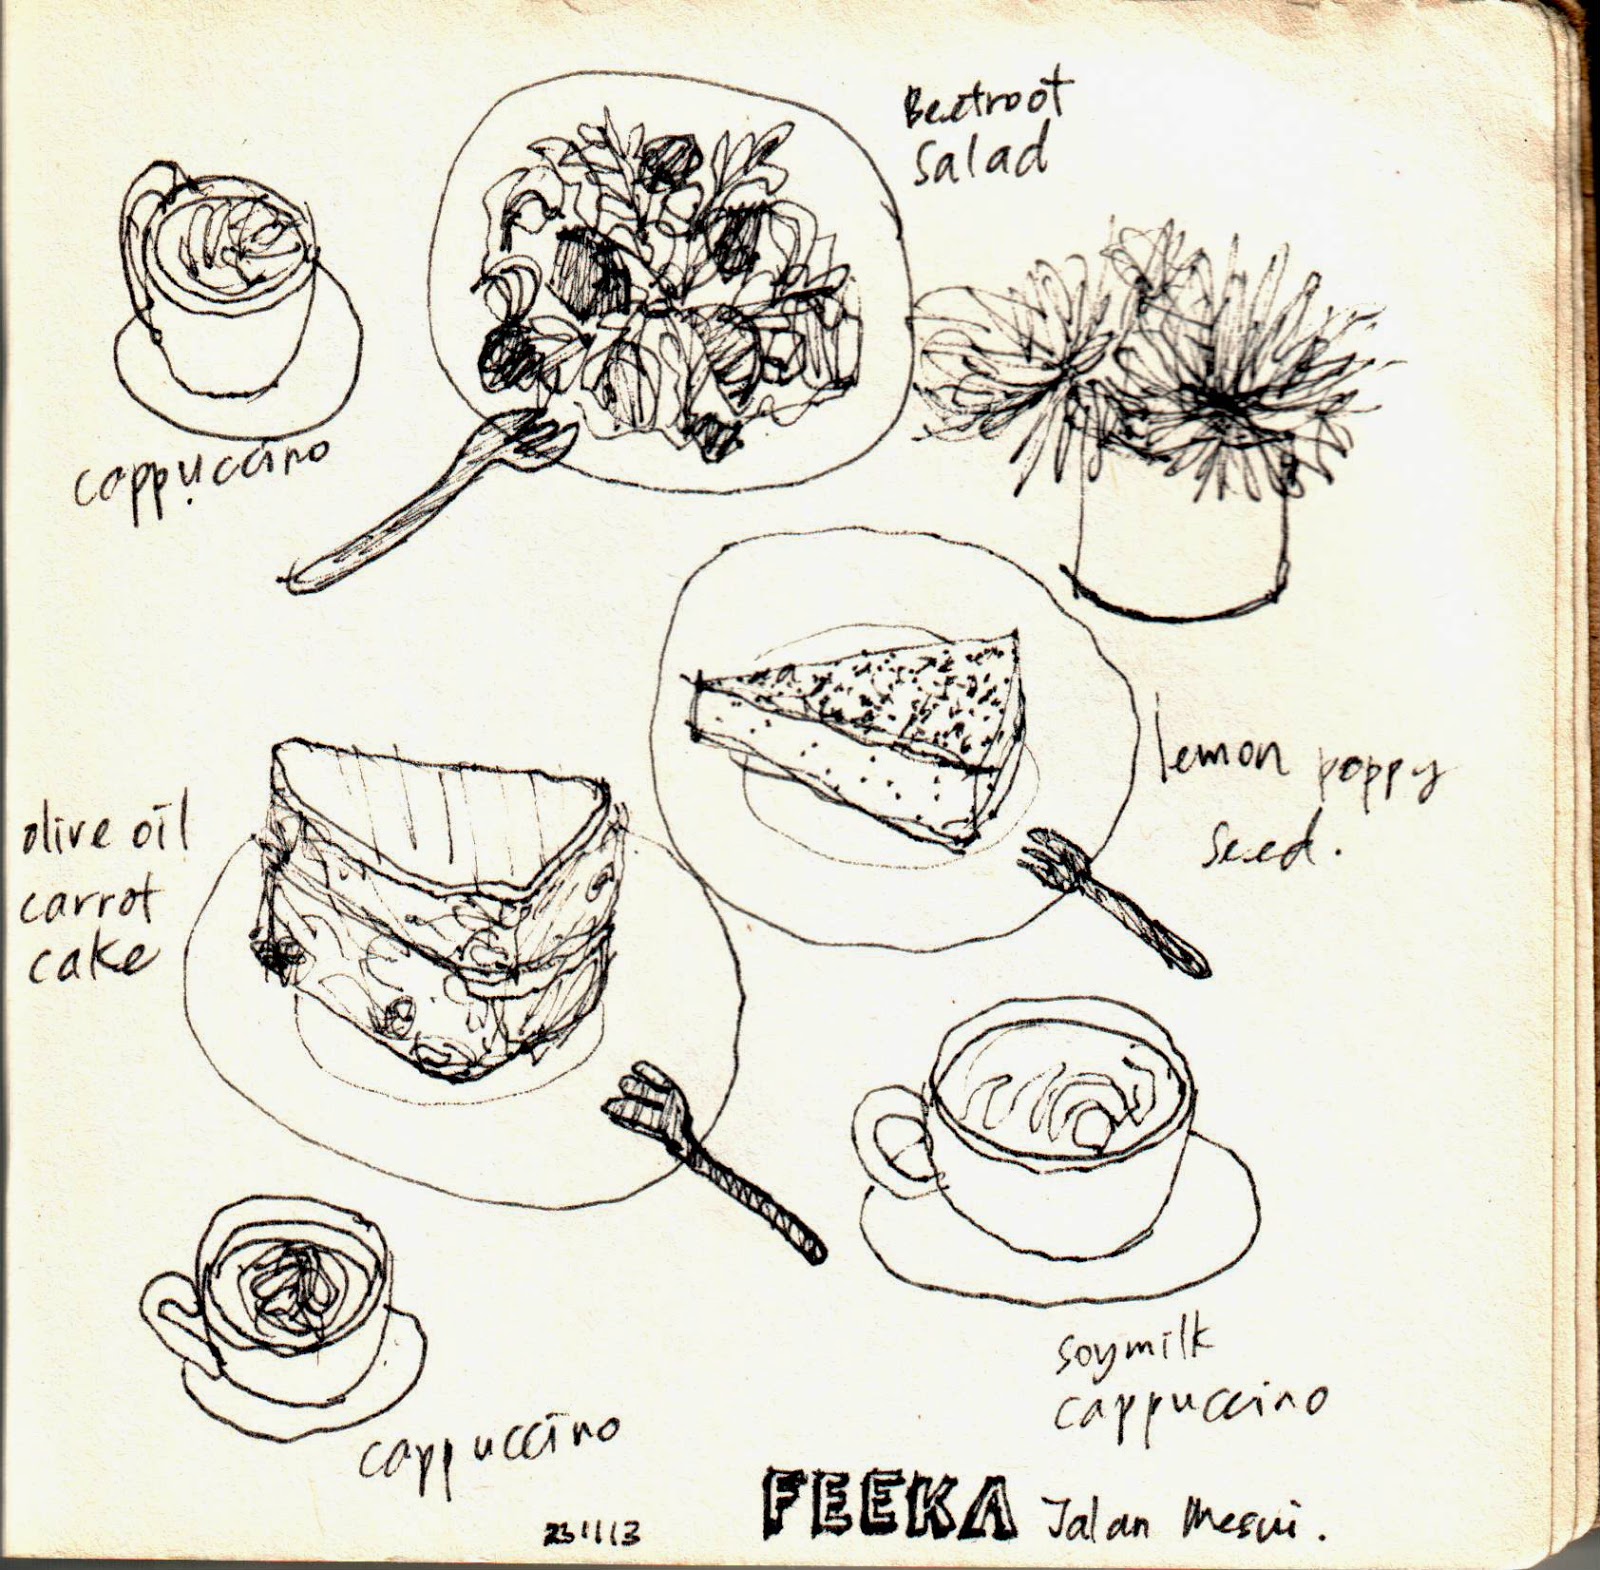 Beetroot
Salad
cappuccino
lemon poppy
seed.
olive oil
carrot
cake
soymilk
cappuccino
cappuccino
FEEKA Jalan Mesui.
231113